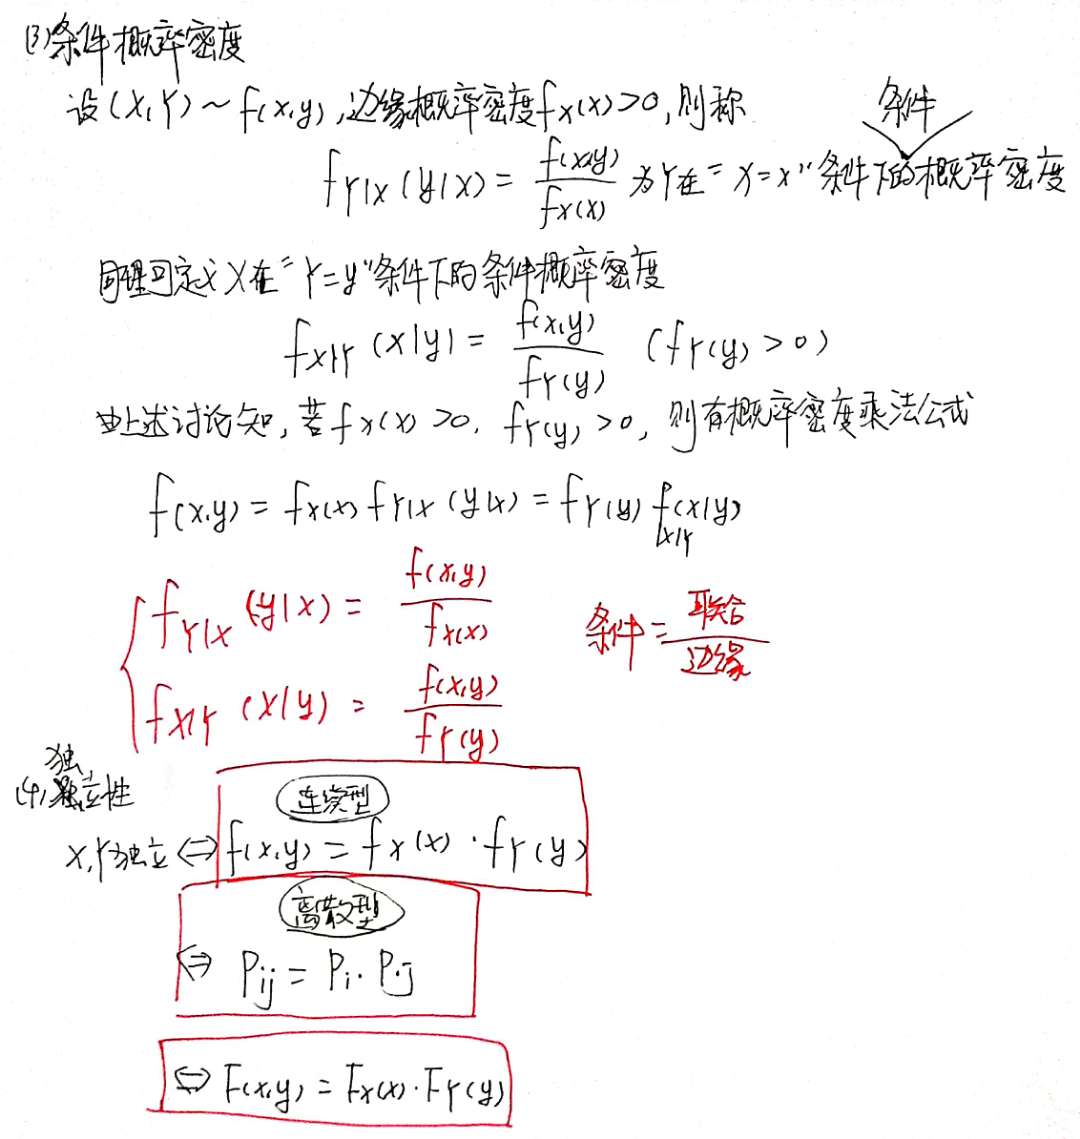 (3)条件概率密度
设(X,Y)~f(x,y),边缘概率密度fX(x)>0,则称
条件
fY|X(y|x)=f(x,y)/fX(x) 为Y在"X=x"条件下的概率密度
同理可定义X在"Y=y"条件下的条件概率密度
fX|Y(x|y)=f(x,y)/fY(y) (fY(y)>0)
由上述讨论知,若fX(x)>0,fY(y)>0,则有概率密度乘法公式
f(x,y)=fX(x)fY|X(y|x)=fY(y)fX|Y(x|y)
{fY|X(y|x)=f(x,y)/fX(x)
条件=联合/边缘
fX|Y(x|y)=f(x,y)/fY(y)
独
(4)独立性
连续型
X,Y独立⇔f(x,y)=fX(x)·fY(y)
离散型
⇔Pij=Pi·P·j
⇔F(x,y)=FX(x)·FY(y)